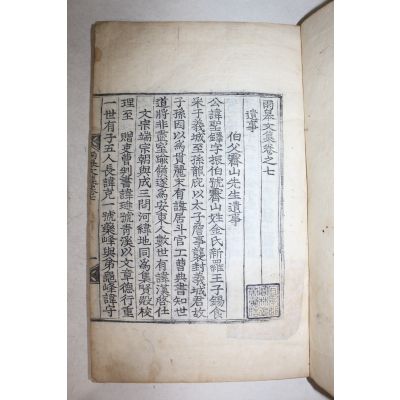 雨皐文集卷之七
遺事
伯父霽山先生遺事
公諱聖鐸字振伯號霽山姓金氏新羅王子錫食
采于義城至孫龍庇以太子詹事襲封義城君故
子孫因以為貫麗末有諱居斗官工曹典書知世
道將非盡室嶺遂為安東人數世有諱漢啓仕
文宗端宗朝與成三問河緯地同為集賢殿校
理至 贈吏曹判書諱璡號青溪以文章德行重
一世有子五人長諱克一號藥峰與弟龜峰諱守